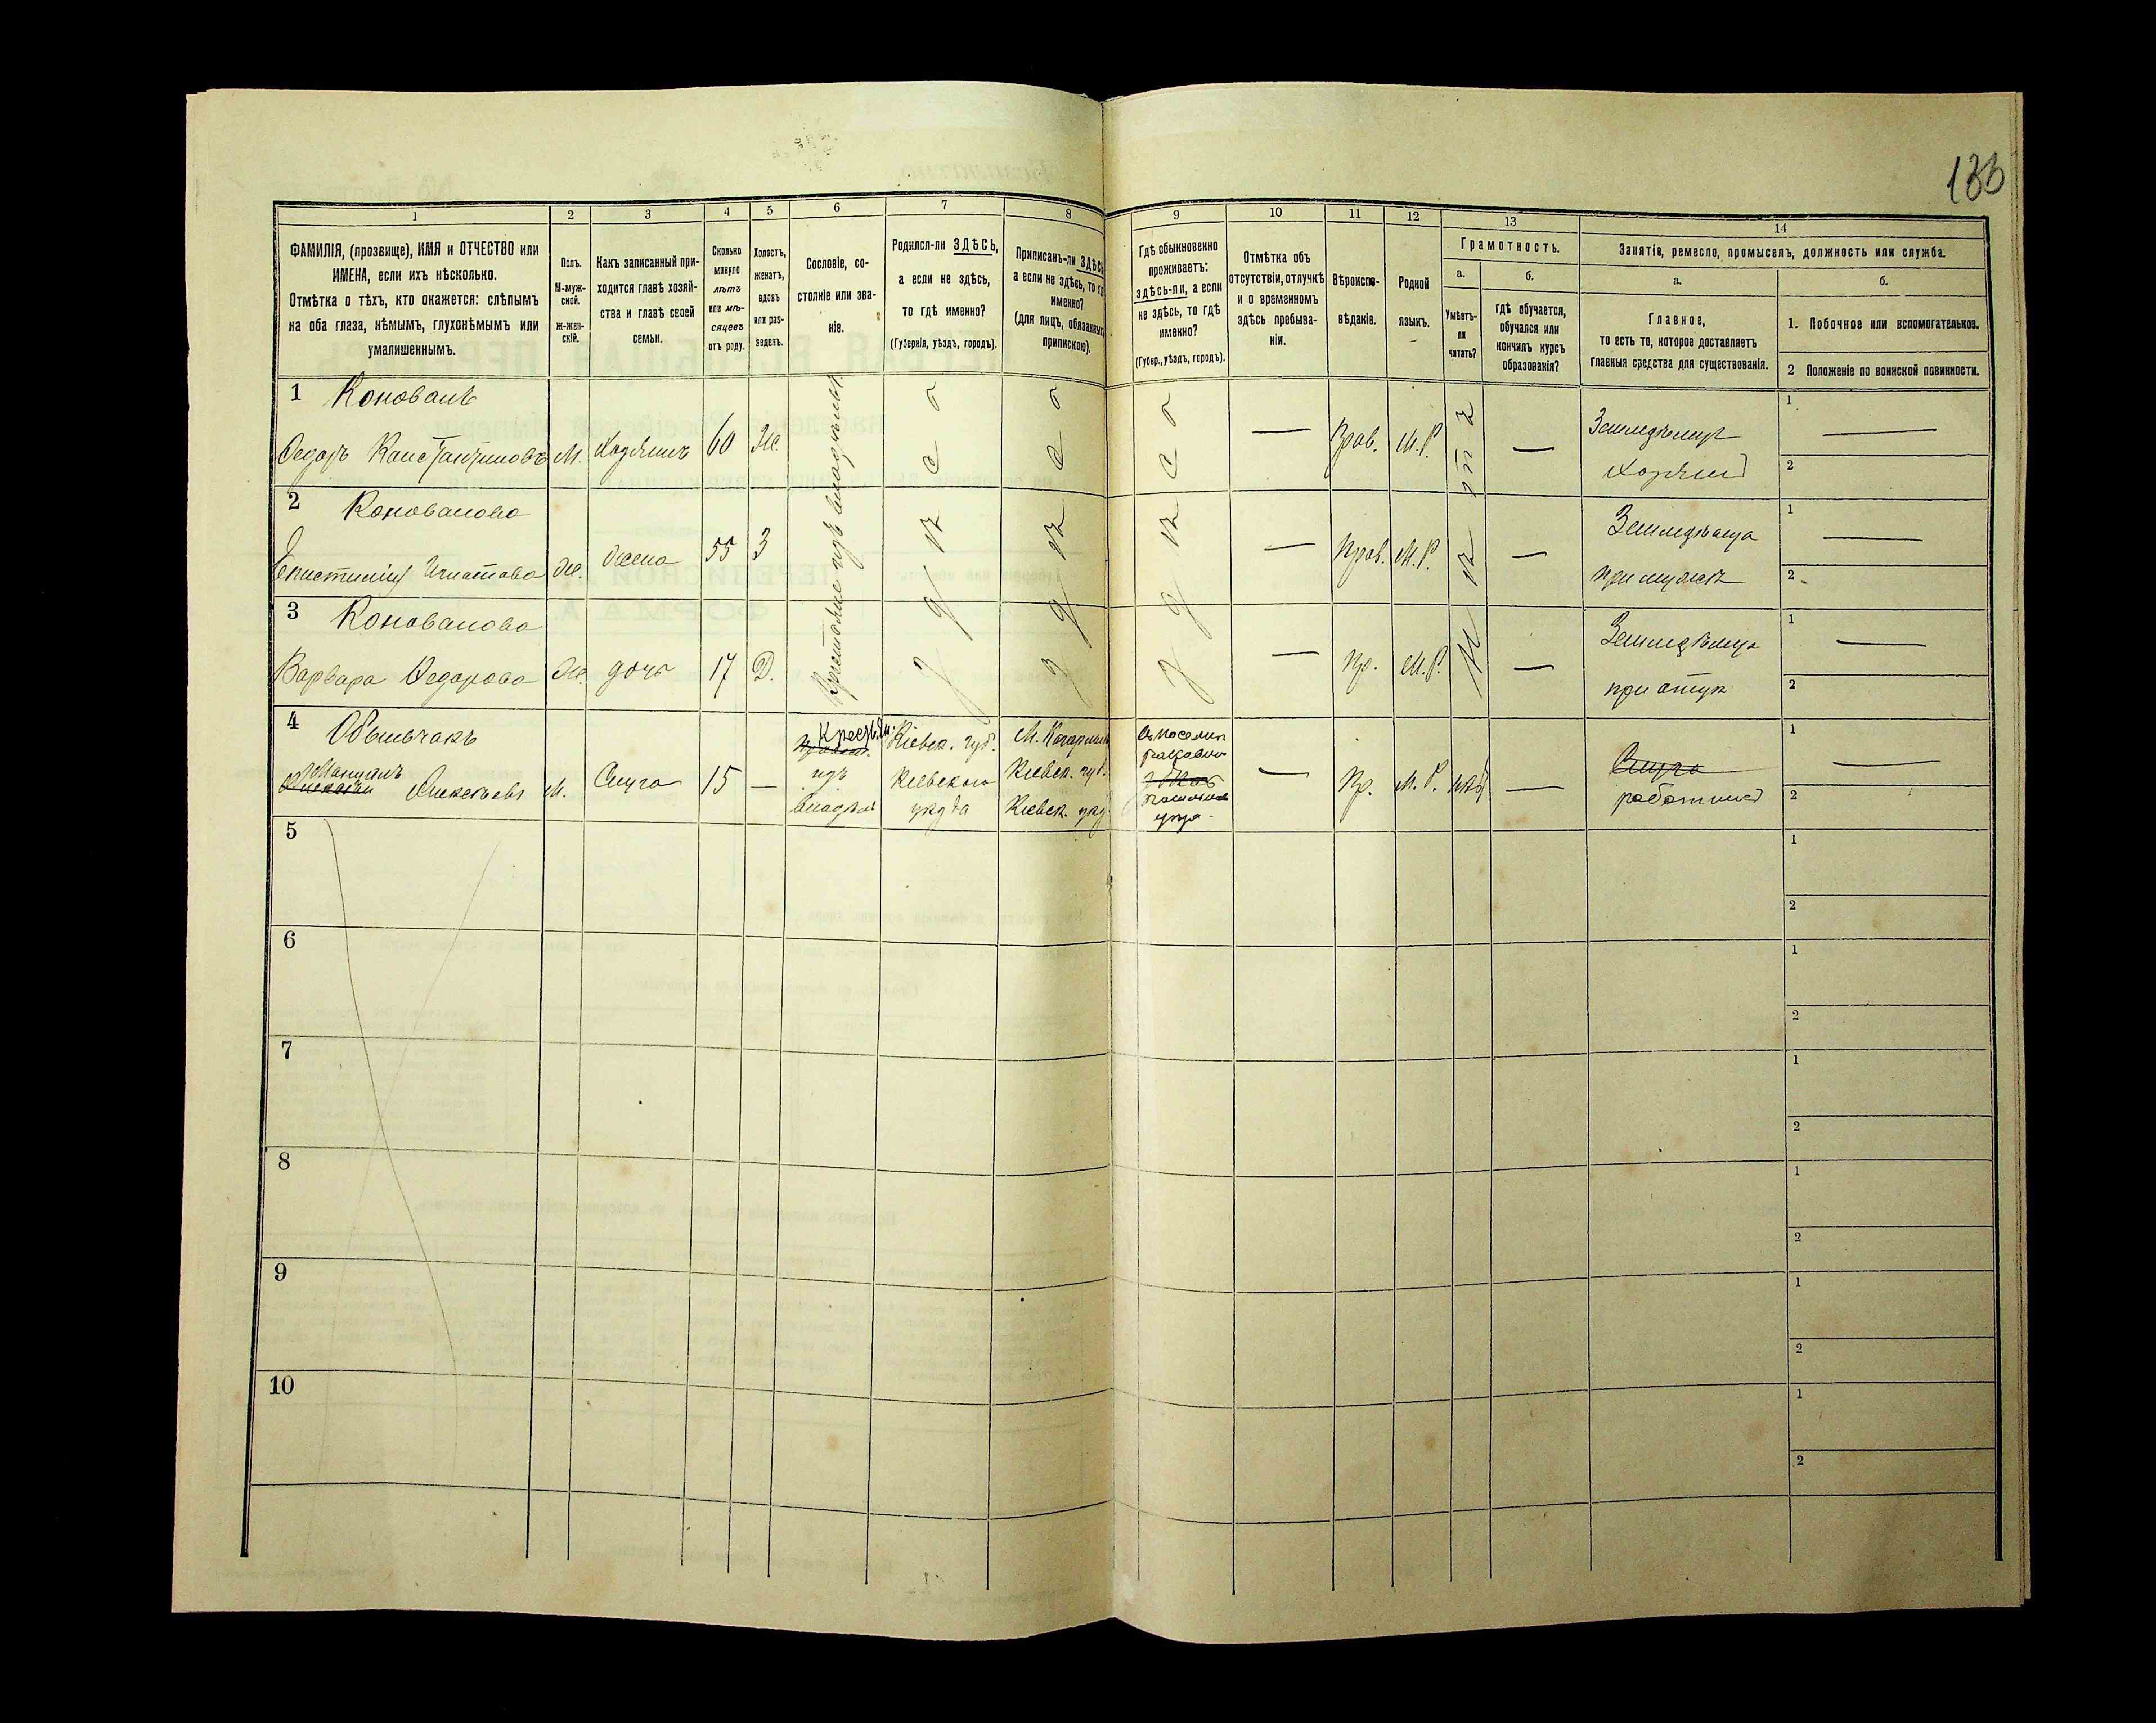 133
1 2 3 4 5 6 7 8 9 10 11 12 13 14
ФАМИЛІЯ, (прозвище), ИМЯ и ОТЧЕСТВО или
ИМЕНА, если ихъ нѣсколько.
Отмѣтка о тѣхъ, кто окажется: слѣпымъ
на оба глаза, нѣмымъ, глухонѣмымъ или
умалишеннымъ.
Полъ.
М-муж-
ской.
Ж-жен-
скій.
Какъ записанный при-
ходится главѣ хозяй-
ства и главѣ своей
семьи.
Сколько
минуло
лѣтъ
или мѣ-
сяцевъ
отъ роду.
Холостъ,
женатъ,
вдовъ
или раз-
веденъ.
Сословіе, со-
стояніе или зва-
ніе.
Родился-ли ЗДѢСЬ,
а если не здѣсь,
то гдѣ именно?
(Губернія, уѣздъ, городъ).
Приписанъ-ли ЗДѢСЬ
а если не здѣсь, то гдѣ
именно?
(для лицъ, обязанныхъ
припискою).
Гдѣ обыкновенно
проживаетъ:
здѣсь-ли, а если
не здѣсь, то гдѣ
именно?
(Губер., уѣздъ, городъ).
Отмѣтка объ
отсутствіи, отлучкѣ
и о временномъ
здѣсь пребыва-
ніи.
Вѣроиспо-
вѣданіе.
Родной
языкъ.
Грамотность.
а.
Умѣетъ-
ли
читать?
б.
гдѣ обучается,
обучался или
кончилъ курсъ
образованія?
Занятія, ремесло, промыселъ, должность или служба.
а.
Главное,
то есть то, которое доставляетъ
главныя средства для существованія.
б.
1. Побочное или вспомогательное.
2 Положеніе по воинской повинности.
1 Коновалъ
Федоръ Константиновъ М. Хозяинъ 60 Ж. Крестьяне изъ владѣльч здѣсь здѣсь здѣсь — Прав. М.Р. нѣтъ — Земледѣлецъ
хозяинъ
1 —
2
2 Коновалова
Ж. жена 55 З — Прав. М.Р. — Земледѣлица
при мужѣ
1 —
2
3 Коновалова
Варвара Федорова Ж. дочь 17 Д. — Пр. М.Р. — Земледѣлица
при отцѣ
1 —
2
4
Мануилъ
Алексѣевъ М. Слуга 15 —
Крестьян.
изъ
владѣл
Кіевск. губ.
Кіевскаго
уѣзда
М.
Кіевск. губ.
Кіевск. уѣз
— Пр. М.Р. — Слуга
работникъ
1 —
2
5
1
2
6
1
2
7
1
2
8
1
2
9
1
2
10
1
2